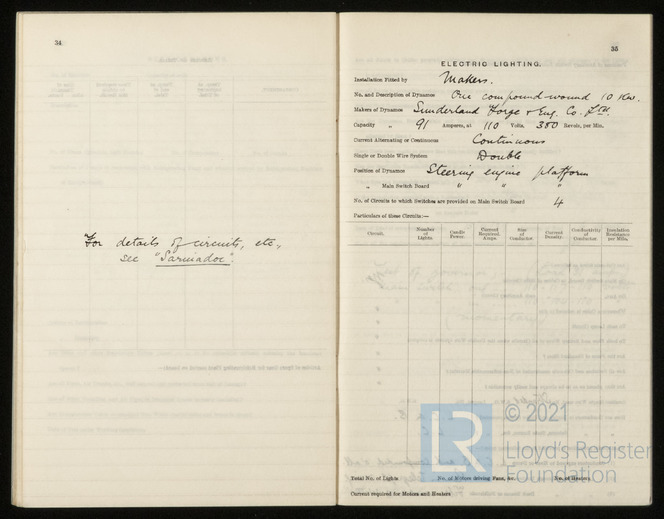 34
For details of circuits, etc.,
see "Sarmadoc".
35
ELECTRIC LIGHTING.
Installation Fitted by Makers.
No. and Description of Dynamos One compound-wound 10 Kw.
Makers of Dynamos Sunderland Forge & Eng. Co. Ltd.
Capacity " 91 Amperes, at 110 Volts, 380 Revols. per Min.
Current Alternating or Continuous Continuous
Single or Double Wire System Double
Position of Dynamos Steering engine platform
" Main Switch Board " " "
No. of Circuits to which Switches are provided on Main Switch Board 4
Particulars of these Circuits:—
Circuit. Number of Lights. Candle Power. Current Required. Amps. Size of Conductor. Current Density. Conductivity of Conductor. Insulation Resistance per Mile.
Total No. of Lights No. of Motors driving Fans, &c. No. of Heaters
Current required for Motors and Heaters
LR © 2021
Lloyd's Register
Foundation